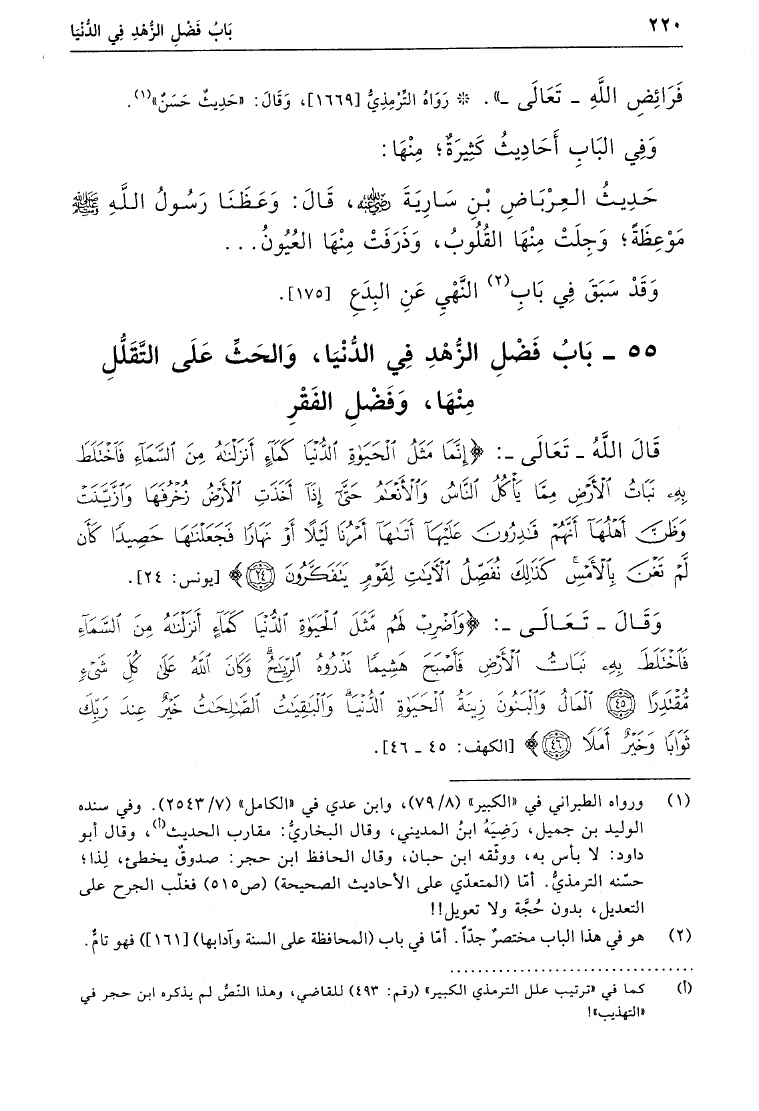 ٢٢٠ بَابُ فَضْلِ الزُّهْدِ فِي الدُّنْيَا
فَرَائِضِ اللَّهِ - تَعَالَى -». * رَوَاهُ التِّرْمِذِيُّ [١٦٦٩]، وَقَالَ: «حَدِيثٌ حَسَنٌ»(١).
وَفِي البَابِ أَحَادِيثُ كَثِيرَةٌ؛ مِنْهَا:
حَدِيثُ العِرْبَاضِ بْنِ سَارِيَةَ رضي الله عنه، قَالَ: وَعَظَنَا رَسُولُ اللَّهِ ﷺ
مَوْعِظَةً؛ وَجِلَتْ مِنْهَا القُلُوبُ، وَذَرَفَتْ مِنْهَا العُيُونُ...
وَقَدْ سَبَقَ فِي بَابِ(٢) النَّهْيِ عَنِ البِدَعِ [١٧٥].
٥٥ - بَابُ فَضْلِ الزُّهْدِ فِي الدُّنْيَا، وَالحَثِّ عَلَى التَّقَلُّلِ
مِنْهَا، وَفَضْلِ الفَقْرِ
قَالَ اللَّهُ - تَعَالَى -: ﴿إِنَّمَا مَثَلُ ٱلْحَيَوٰةِ ٱلدُّنْيَا كَمَآءٍ أَنزَلْنَٰهُ مِنَ ٱلسَّمَآءِ فَٱخْتَلَطَ
بِهِۦ نَبَاتُ ٱلْأَرْضِ مِمَّا يَأْكُلُ ٱلنَّاسُ وَٱلْأَنْعَٰمُ حَتَّىٰٓ إِذَآ أَخَذَتِ ٱلْأَرْضُ زُخْرُفَهَا وَٱزَّيَّنَتْ
وَظَنَّ أَهْلُهَآ أَنَّهُمْ قَٰدِرُونَ عَلَيْهَآ أَتَىٰهَآ أَمْرُنَا لَيْلًا أَوْ نَهَارًا فَجَعَلْنَٰهَا حَصِيدًا كَأَن
لَّمْ تَغْنَ بِٱلْأَمْسِ ۚ كَذَٰلِكَ نُفَصِّلُ ٱلْآيَٰتِ لِقَوْمٍ يَتَفَكَّرُونَ ٢٤﴾ [يونس: ٢٤].
وَقَالَ - تَعَالَى -: ﴿وَٱضْرِبْ لَهُم مَّثَلَ ٱلْحَيَوٰةِ ٱلدُّنْيَا كَمَآءٍ أَنزَلْنَٰهُ مِنَ ٱلسَّمَآءِ
فَٱخْتَلَطَ بِهِۦ نَبَاتُ ٱلْأَرْضِ فَأَصْبَحَ هَشِيمًا تَذْرُوهُ ٱلرِّيَٰحُ ۗ وَكَانَ ٱللَّهُ عَلَىٰ كُلِّ شَىْءٍ
مُّقْتَدِرًا ٤٥ ٱلْمَالُ وَٱلْبَنُونَ زِينَةُ ٱلْحَيَوٰةِ ٱلدُّنْيَا ۖ وَٱلْبَٰقِيَٰتُ ٱلصَّٰلِحَٰتُ خَيْرٌ عِندَ رَبِّكَ
ثَوَابًا وَخَيْرٌ أَمَلًا ٤٦﴾ [الكهف: ٤٥ - ٤٦].
(١) ورواه الطبراني في «الكبير» (٧٩/٨)، وابن عدي في «الكامل» (٢٥٤٣/٧). وفي سنده
الوليد بن جميل، رَضِيَهُ ابنُ المديني، وقال البخاريُّ: مقارب الحديث(أ)، وقال أبو
داود: لا بأس به، ووثّقه ابن حبان، وقال الحافظ ابن حجر: صدوقٌ يخطئ، لِذا؛
حسّنه الترمذيُّ. أمّا (المتعدّي على الأحاديث الصحيحة) (ص٥١٥) فغلّب الجرح على
التعديل، بدون حُجَّة ولا تعويل!!
(٢) هو في هذا الباب مختصرٌ جدّاً. أمّا في باب (المحافظة على السنة وآدابها) [١٦١]) فهو تامٌّ.
(أ) كما في «ترتيب علل الترمذي الكبير» (رقم: ٤٩٣) للقاضي، وهذا النّصُّ لم يذكره ابن حجر في
«التهذيب»!